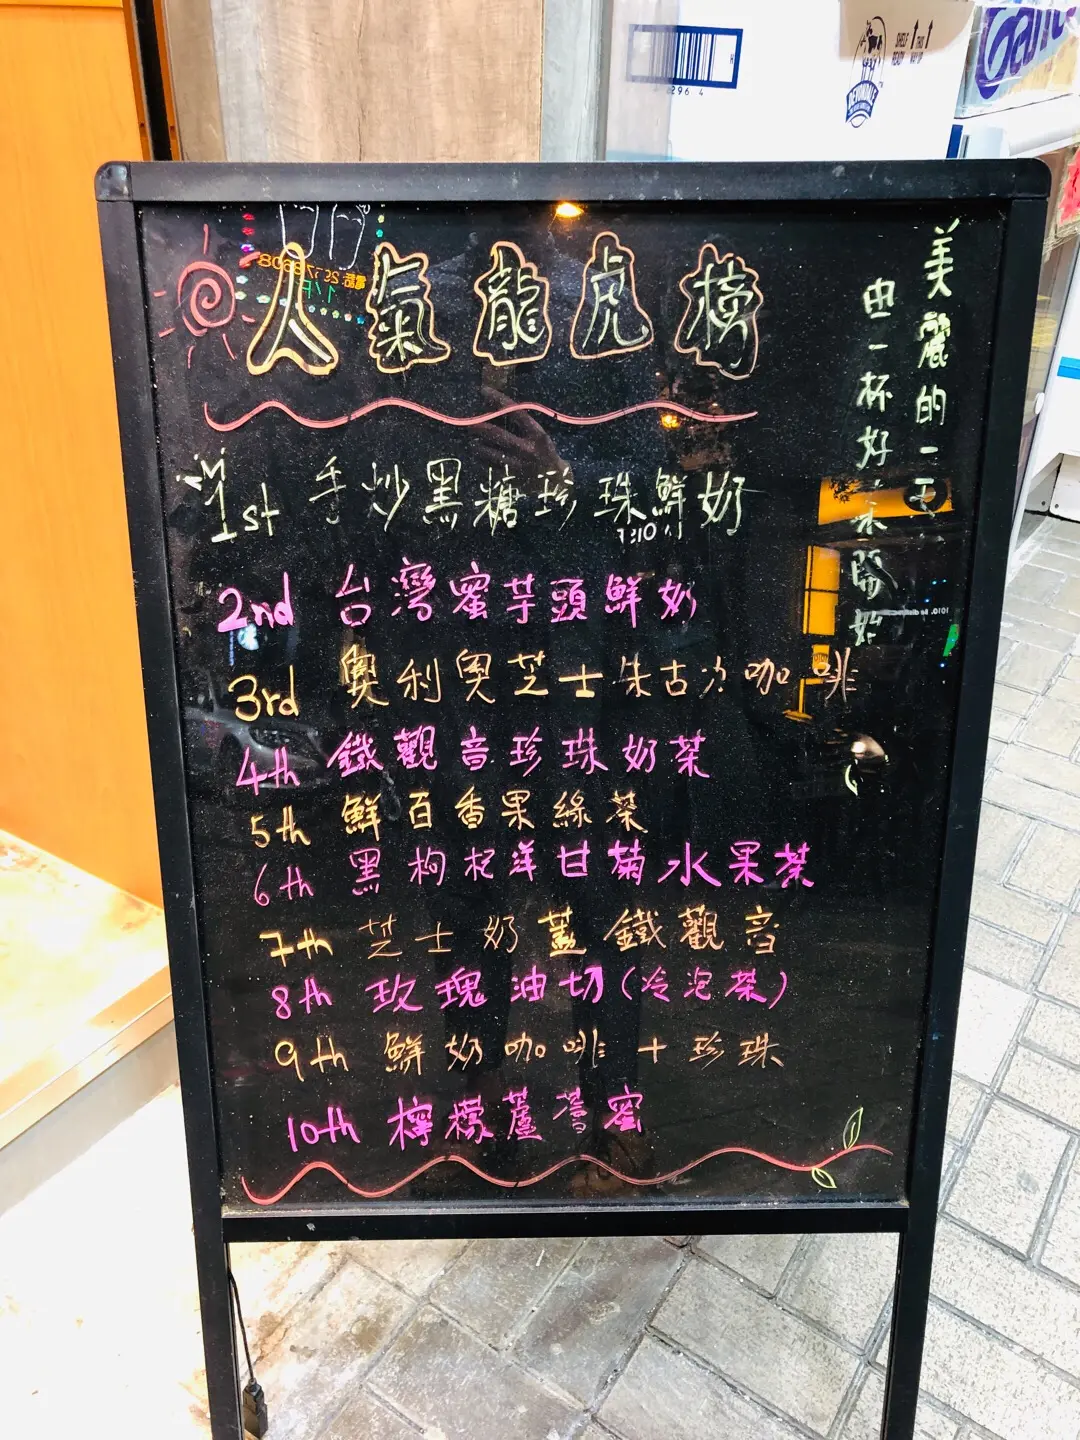 人氣龍虎榜
美麗的一天
由一杯好茶開始
1st 手炒黑糖珍珠鮮奶
2nd 台灣蜜芋頭鮮奶
3rd 奧利奧芝士朱古力咖啡
4th 鐵觀音珍珠奶茶
5th 鮮百香果綠茶
6th 黑枸杞洋甘菊水果茶
7th 芝士奶蓋鐵觀音
8th 玫瑰油切(冷泡茶)
9th 鮮奶咖啡+珍珠
10th 檸檬蘆薈蜜
DEVONDALE
SHELF READY
THIS WAY UP